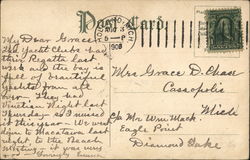 Post Card.
My Dear Grace:-
The Yacht Clubs had
their Regatta last
week and the bay is
full of beautiful
Yachts from all
over. They had
Venetian Night last
Thursday - so I missed
it this year - We went
down to Macatawa last
night to the Beach
Meeting - it was very
1908
Mrs Grace D. Chase
Cassopolis
Mich
c/o Mr. Wm. Mack
Eagle Point
Diamond Lake